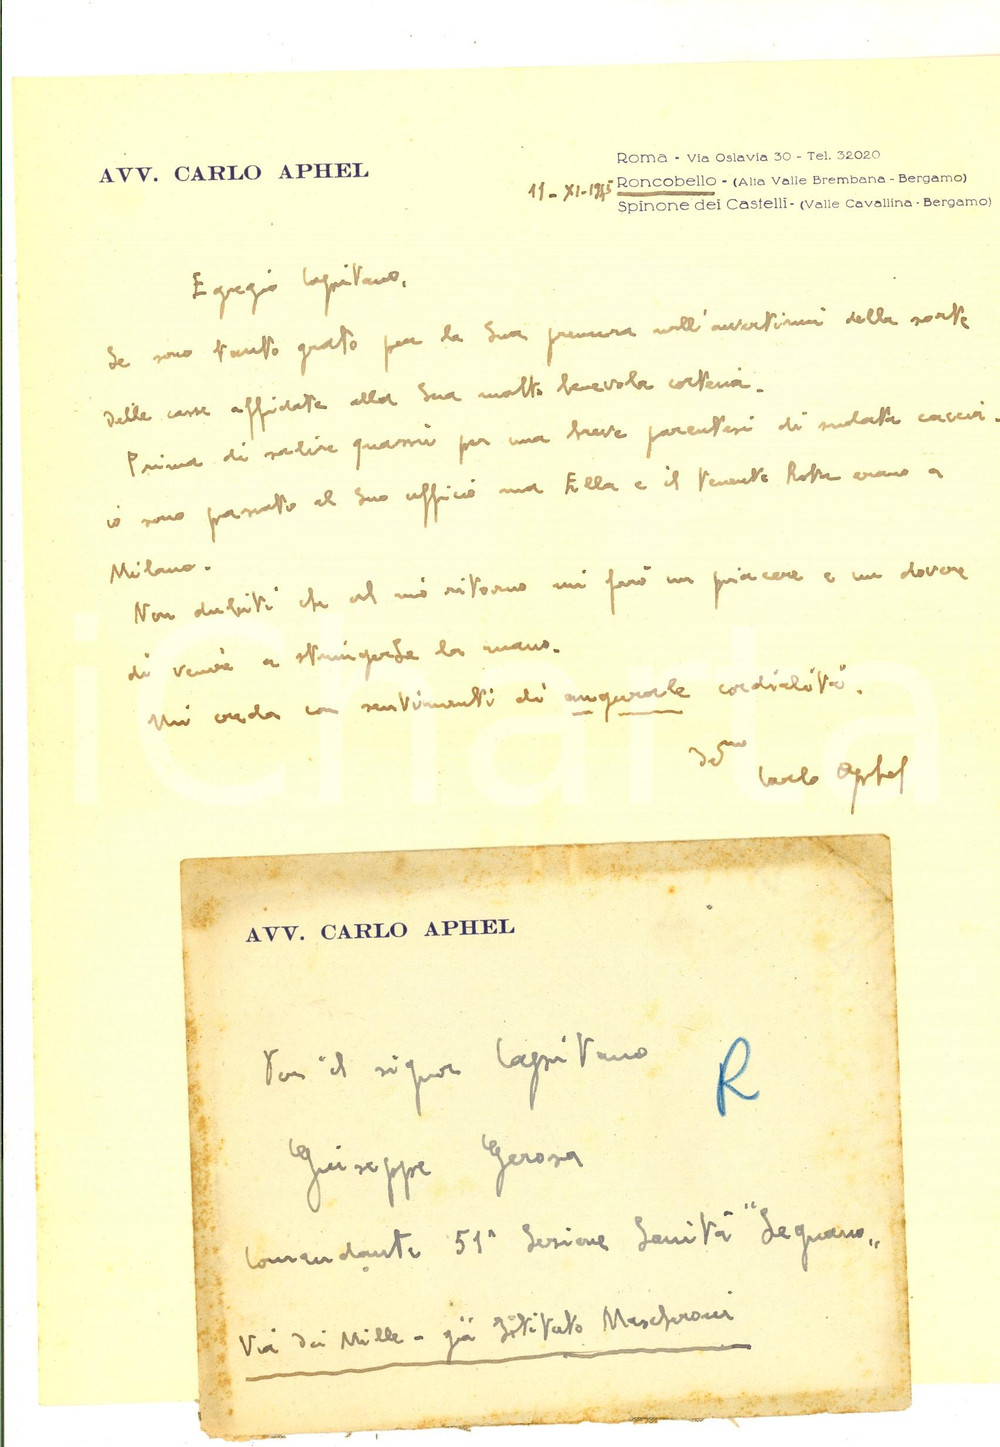 AVV. CARLO APHEL
Roma - Via Oslavia 30 - Tel. 32020
11-XI-1945 Roncobello - (Alta Valle Brembana - Bergamo)
Spinone dei Castelli - (Valle Cavallina - Bergamo)
Egregio Capitano,
Le sono tanto grato per la Sua premura nell'avvertirmi della sorte
delle casse affidate alla Sua molto benevola cortesia.
Prima di salire quassù per una breve parentesi di
io sono passato al Suo ufficio ma Ella e il tenente Rota erano a
Milano.
Non dubiti che al mio ritorno mi farò un piacere e un dovere
di venire a stringerLe la mano.
Mi creda con sentimenti di augurale cordialità.
Carlo Aphel
iCharta
AVV. CARLO APHEL
il signor Capitano
R
Giuseppe Gerosa
Comandante 51ª Sezione Sanità "Legnano"
Via dei Mille - già Istituto Mascheroni